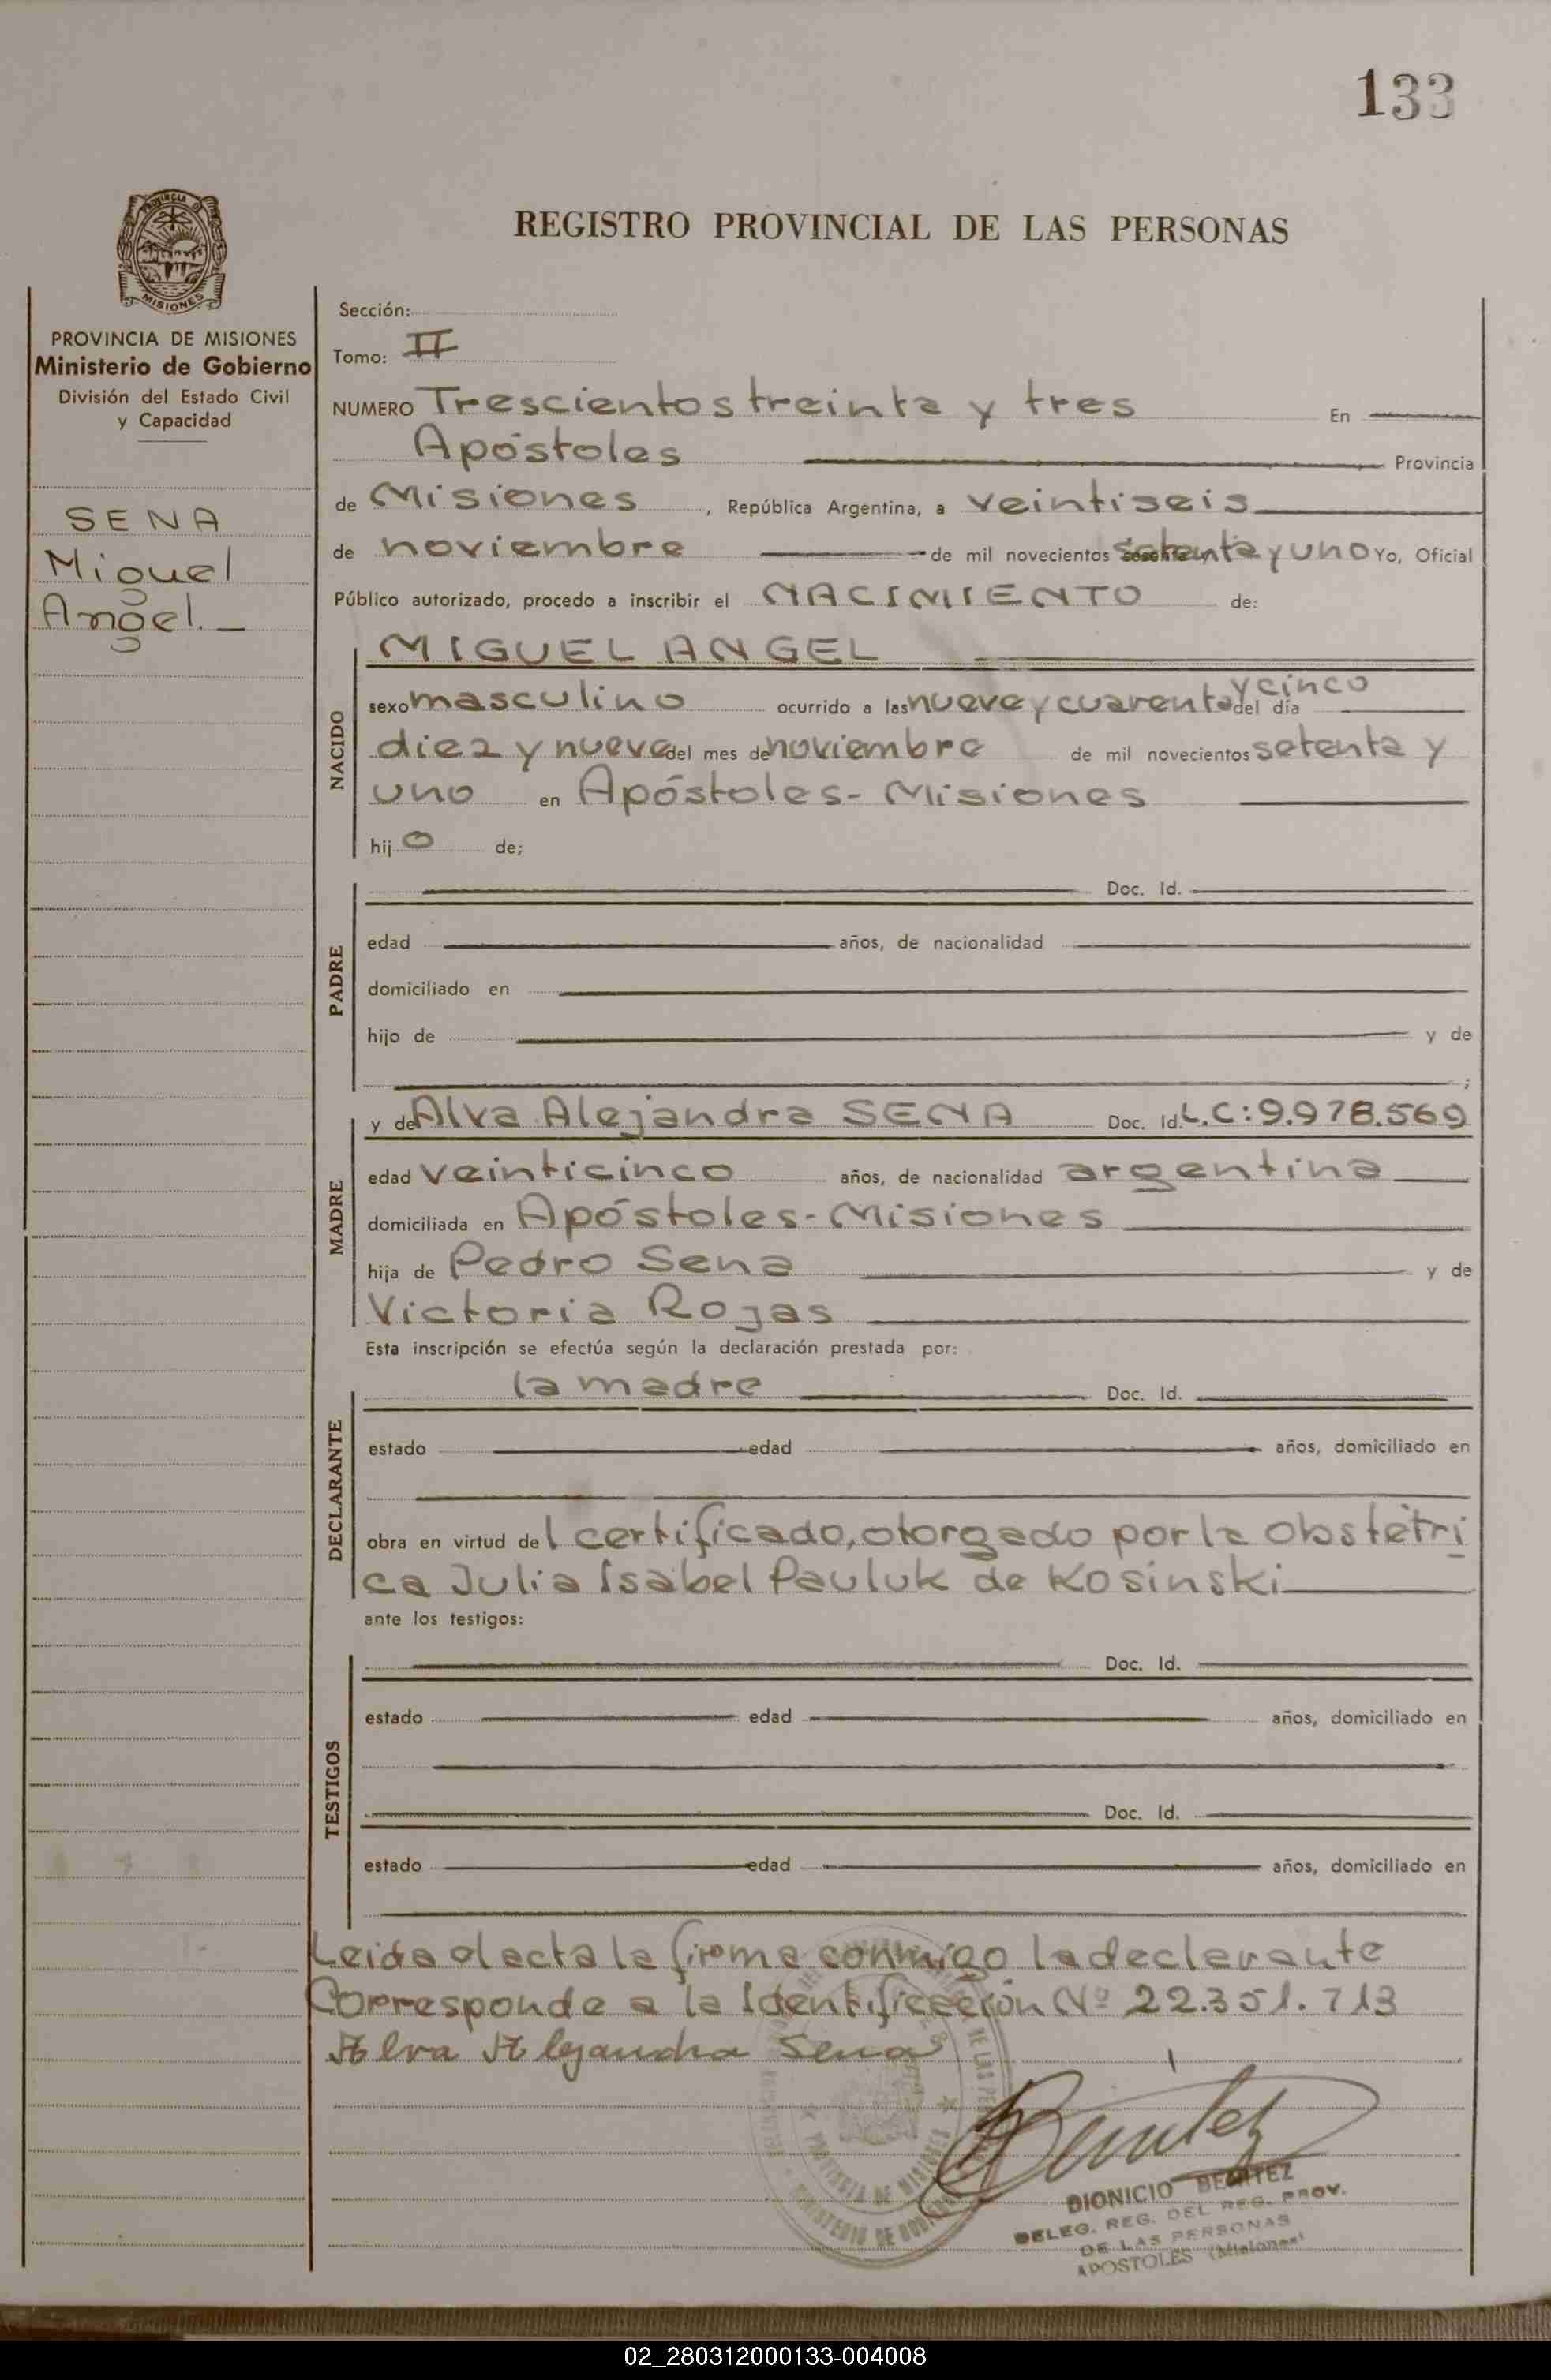 133
REGISTRO PROVINCIAL DE LAS PERSONAS
PROVINCIA DE MISIONES
Ministerio de Gobierno
División del Estado Civil
y Capacidad
SENA
Miguel
Angel.-
Sección:
Tomo: II
NUMERO Trescientos treinta y tres En
Apóstoles Provincia
de Misiones, República Argentina, a veintiseis
de noviembre de mil novecientos setenta y uno Yo, Oficial
Público autorizado, procedo a inscribir el NACIMIENTO de:
NACIDO
MIGUEL ANGEL
y cinco
sexo masculino ocurrido a las nueve y cuarenta del día
diez y nueve del mes de noviembre de mil novecientos setenta y
uno en Apóstoles- Misiones
hijo de;
PADRE
Doc. Id.
edad años, de nacionalidad
domiciliado en
hijo de y de
;
MADRE
y de Alva Alejandra SENA Doc. Id. L.C:9.978.569
edad veinticinco años, de nacionalidad argentina
domiciliada en Apóstoles-Misiones
hija de Pedro Sena y de
Victoria Rojas
Esta inscripción se efectúa según la declaración prestada por:
DECLARANTE
la madre Doc. Id.
estado edad años, domiciliado en
obra en virtud del certificado, otorgado por la obstétri
ca Julia Isabel Pauluk de Kosinski
ante los testigos:
TESTIGOS
Doc. Id.
estado edad años, domiciliado en
Doc. Id.
estado edad años, domiciliado en
Leida el acta la firma conmigo la declarante
Corresponde a la Identificación Nº 22.351.713
Alva Alejandra Sena
Benitez
DIONICIO BENITEZ
DELEG. REG. DEL REG. PROV.
DE LAS PERSONAS
APOSTOLES (Misiones)
02_280312000133-004008